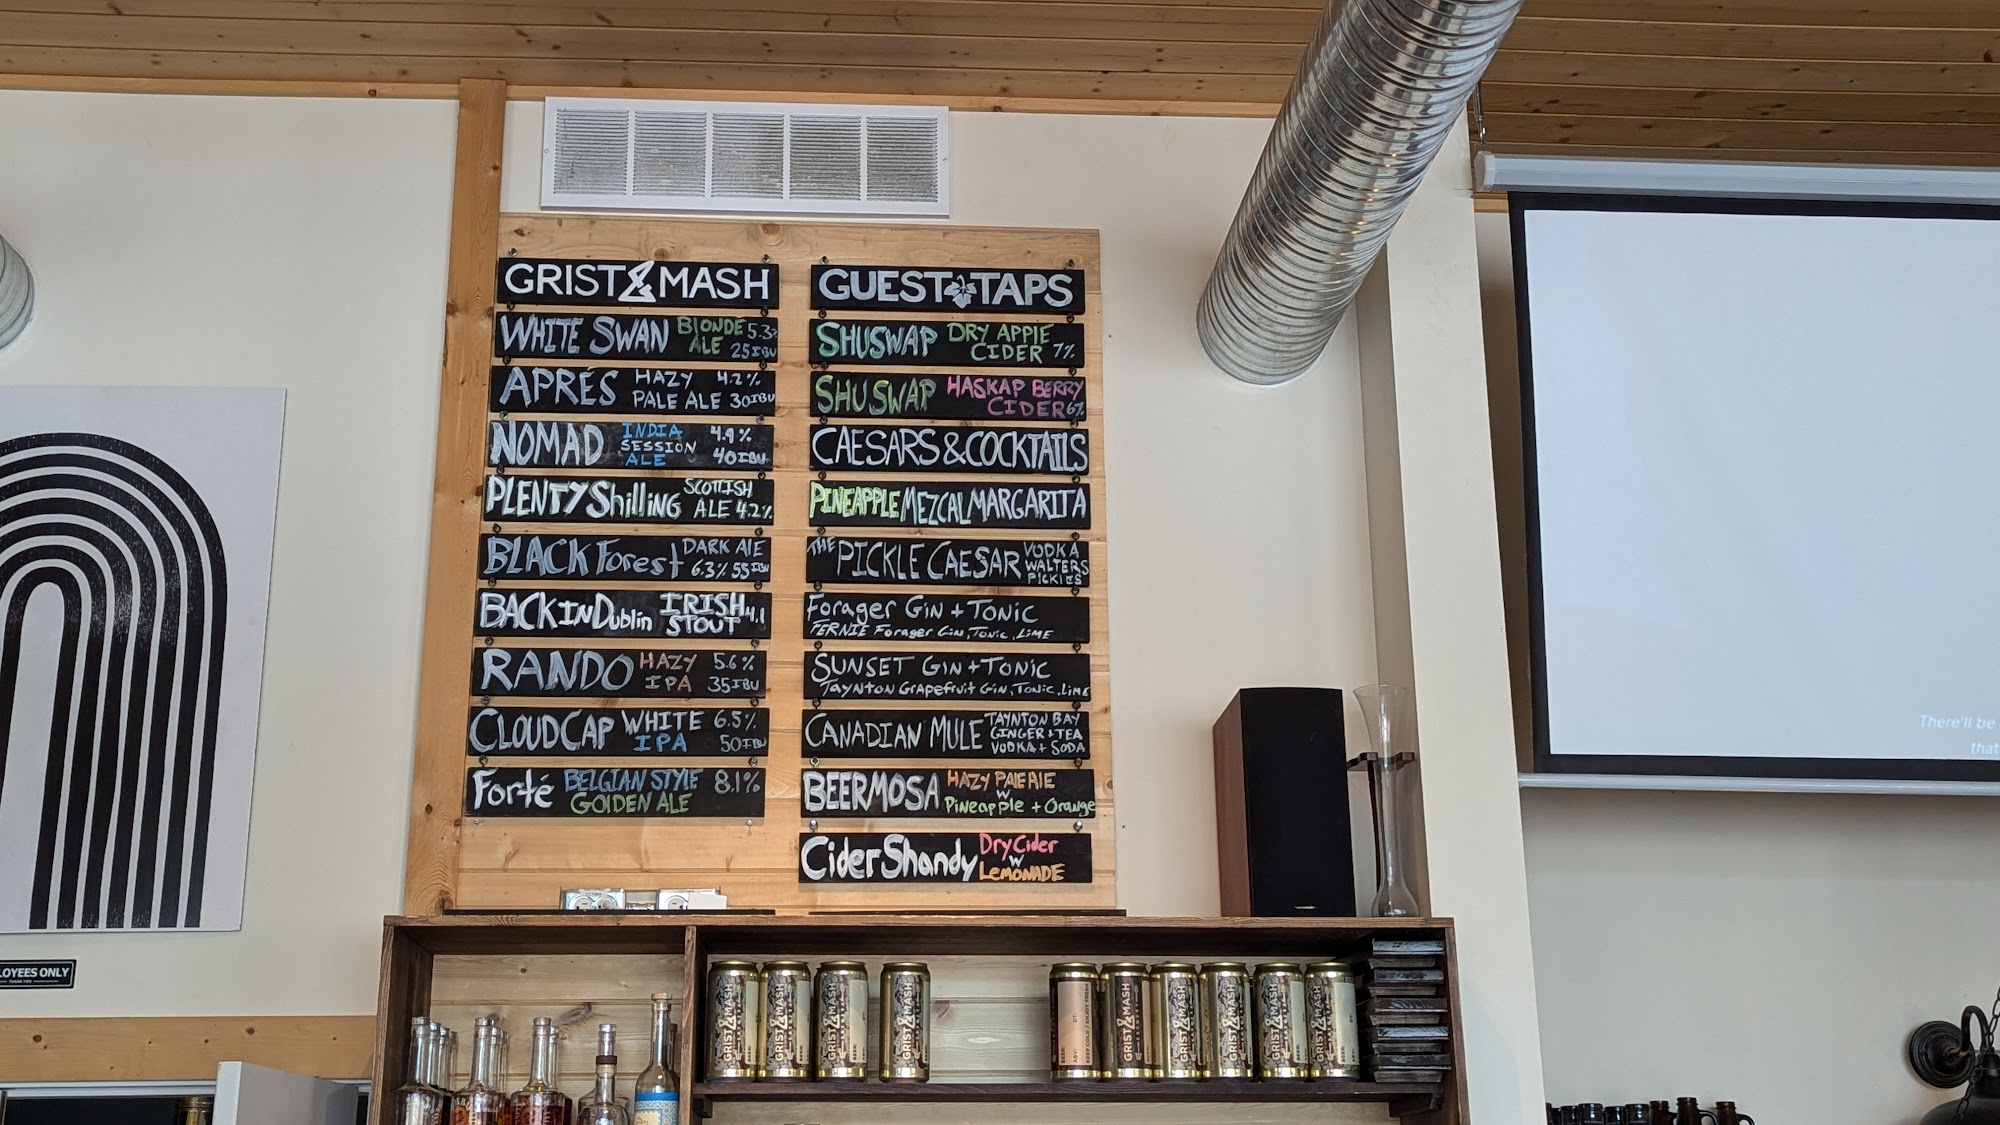 GRIST & MASH
WHITE SWAN BLONDE ALE 5.3% 25 IBU
APRÉS HAZY PALE ALE 4.2% 30 IBU
NOMAD INDIA SESSION ALE 4.9% 40 IBU
PLENTY Shilling SCOTTISH ALE 4.2%
BLACK Forest DARK ALE 6.3% 55 IBU
BACK IN Dublin IRISH STOUT 4.1
RANDO HAZY IPA 5.6% 35 IBU
CLOUD CAP WHITE IPA 6.5% 50 IBU
Forté BELGIAN STYLE GOLDEN ALE 8.1%
GUEST TAPS
SHUSWAP DRY APPLE CIDER 7%
SHUSWAP HASKAP BERRY CIDER 6%
CAESARS & COCKTAILS
PINEAPPLE MEZCAL MARGARITA
THE PICKLE CAESAR VODKA WALTERS PICKLES
Forager GIN + TONIC
FERNIE Forager Gin, Tonic, LIME
SUNSET GIN + TONIC
Taynton Grapefruit Gin, Tonic, Lime
CANADIAN MULE TAYNTON BAY GINGER + TEA VODKA + SODA
BEERMOSA HAZY PALE ALE w Pineapple + Orange
Cider Shandy Dry Cider w LEMONADE
There'll be
that
LOYEES ONLY
THANK YOU
GRIST & MASH
GRIST & MASH
GRIST & MASH
GRIST & MASH
BEER:
ABV:
DT:
KEEP COLD / ENJOY FRESH
GRIST & MASH
GRIST & MASH
GRIST & MASH
GRIST & MASH
GRIST & MASH